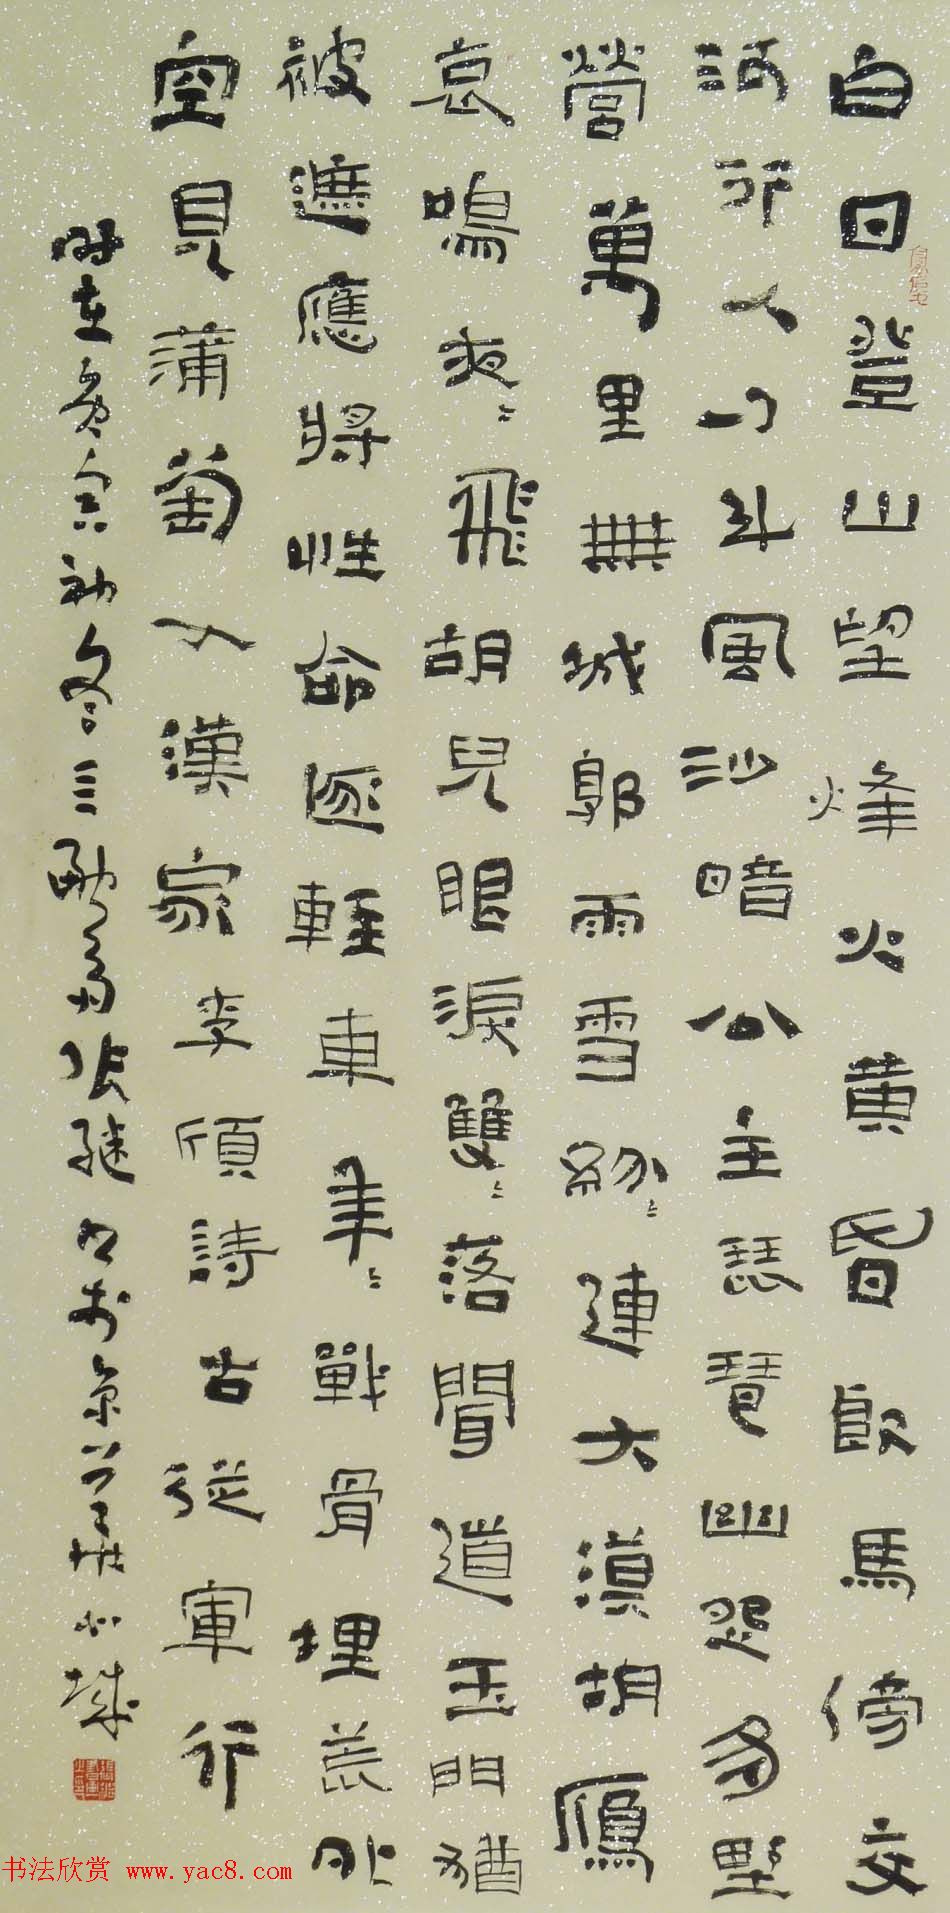 白日登山望烽火黄昏飲馬傍交
河行人刁斗風沙暗公主琵琶幽怨多野
營萬里無城郭雨雪紛〻連大漠胡鴈
哀鳴夜〻飛胡兒眼淚雙〻落聞道玉門猶
被遮應將性命逐輕車年〻戰骨埋荒外
空見蒲萄入漢家李頎詩古從軍行
時在庚寅初冬三張繼書於京華
书法欣赏 www.yac8.com